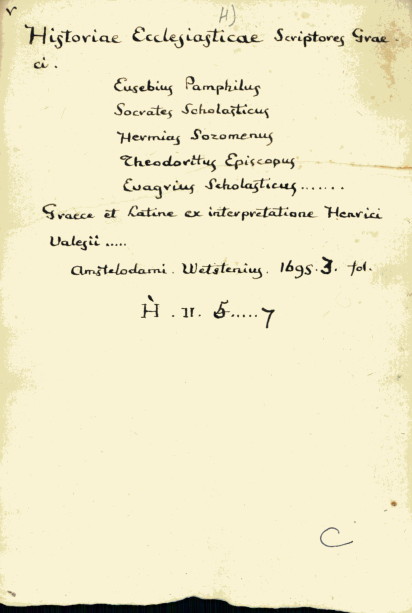 v
H)
Historiae Ecclesiasticae Scriptores Grae-
ci.
Eusebius Pamphilus
Socrates Scholasticus
Hermias Sozomenus
Theodoritus Episcopus
Evagrius Scholasticus......
Graece et Latine ex interpretatione Henrici
Valesii.....
Amstelodami. Wetstenius. 1695. 3. fol.
H. II. 5.....7
C